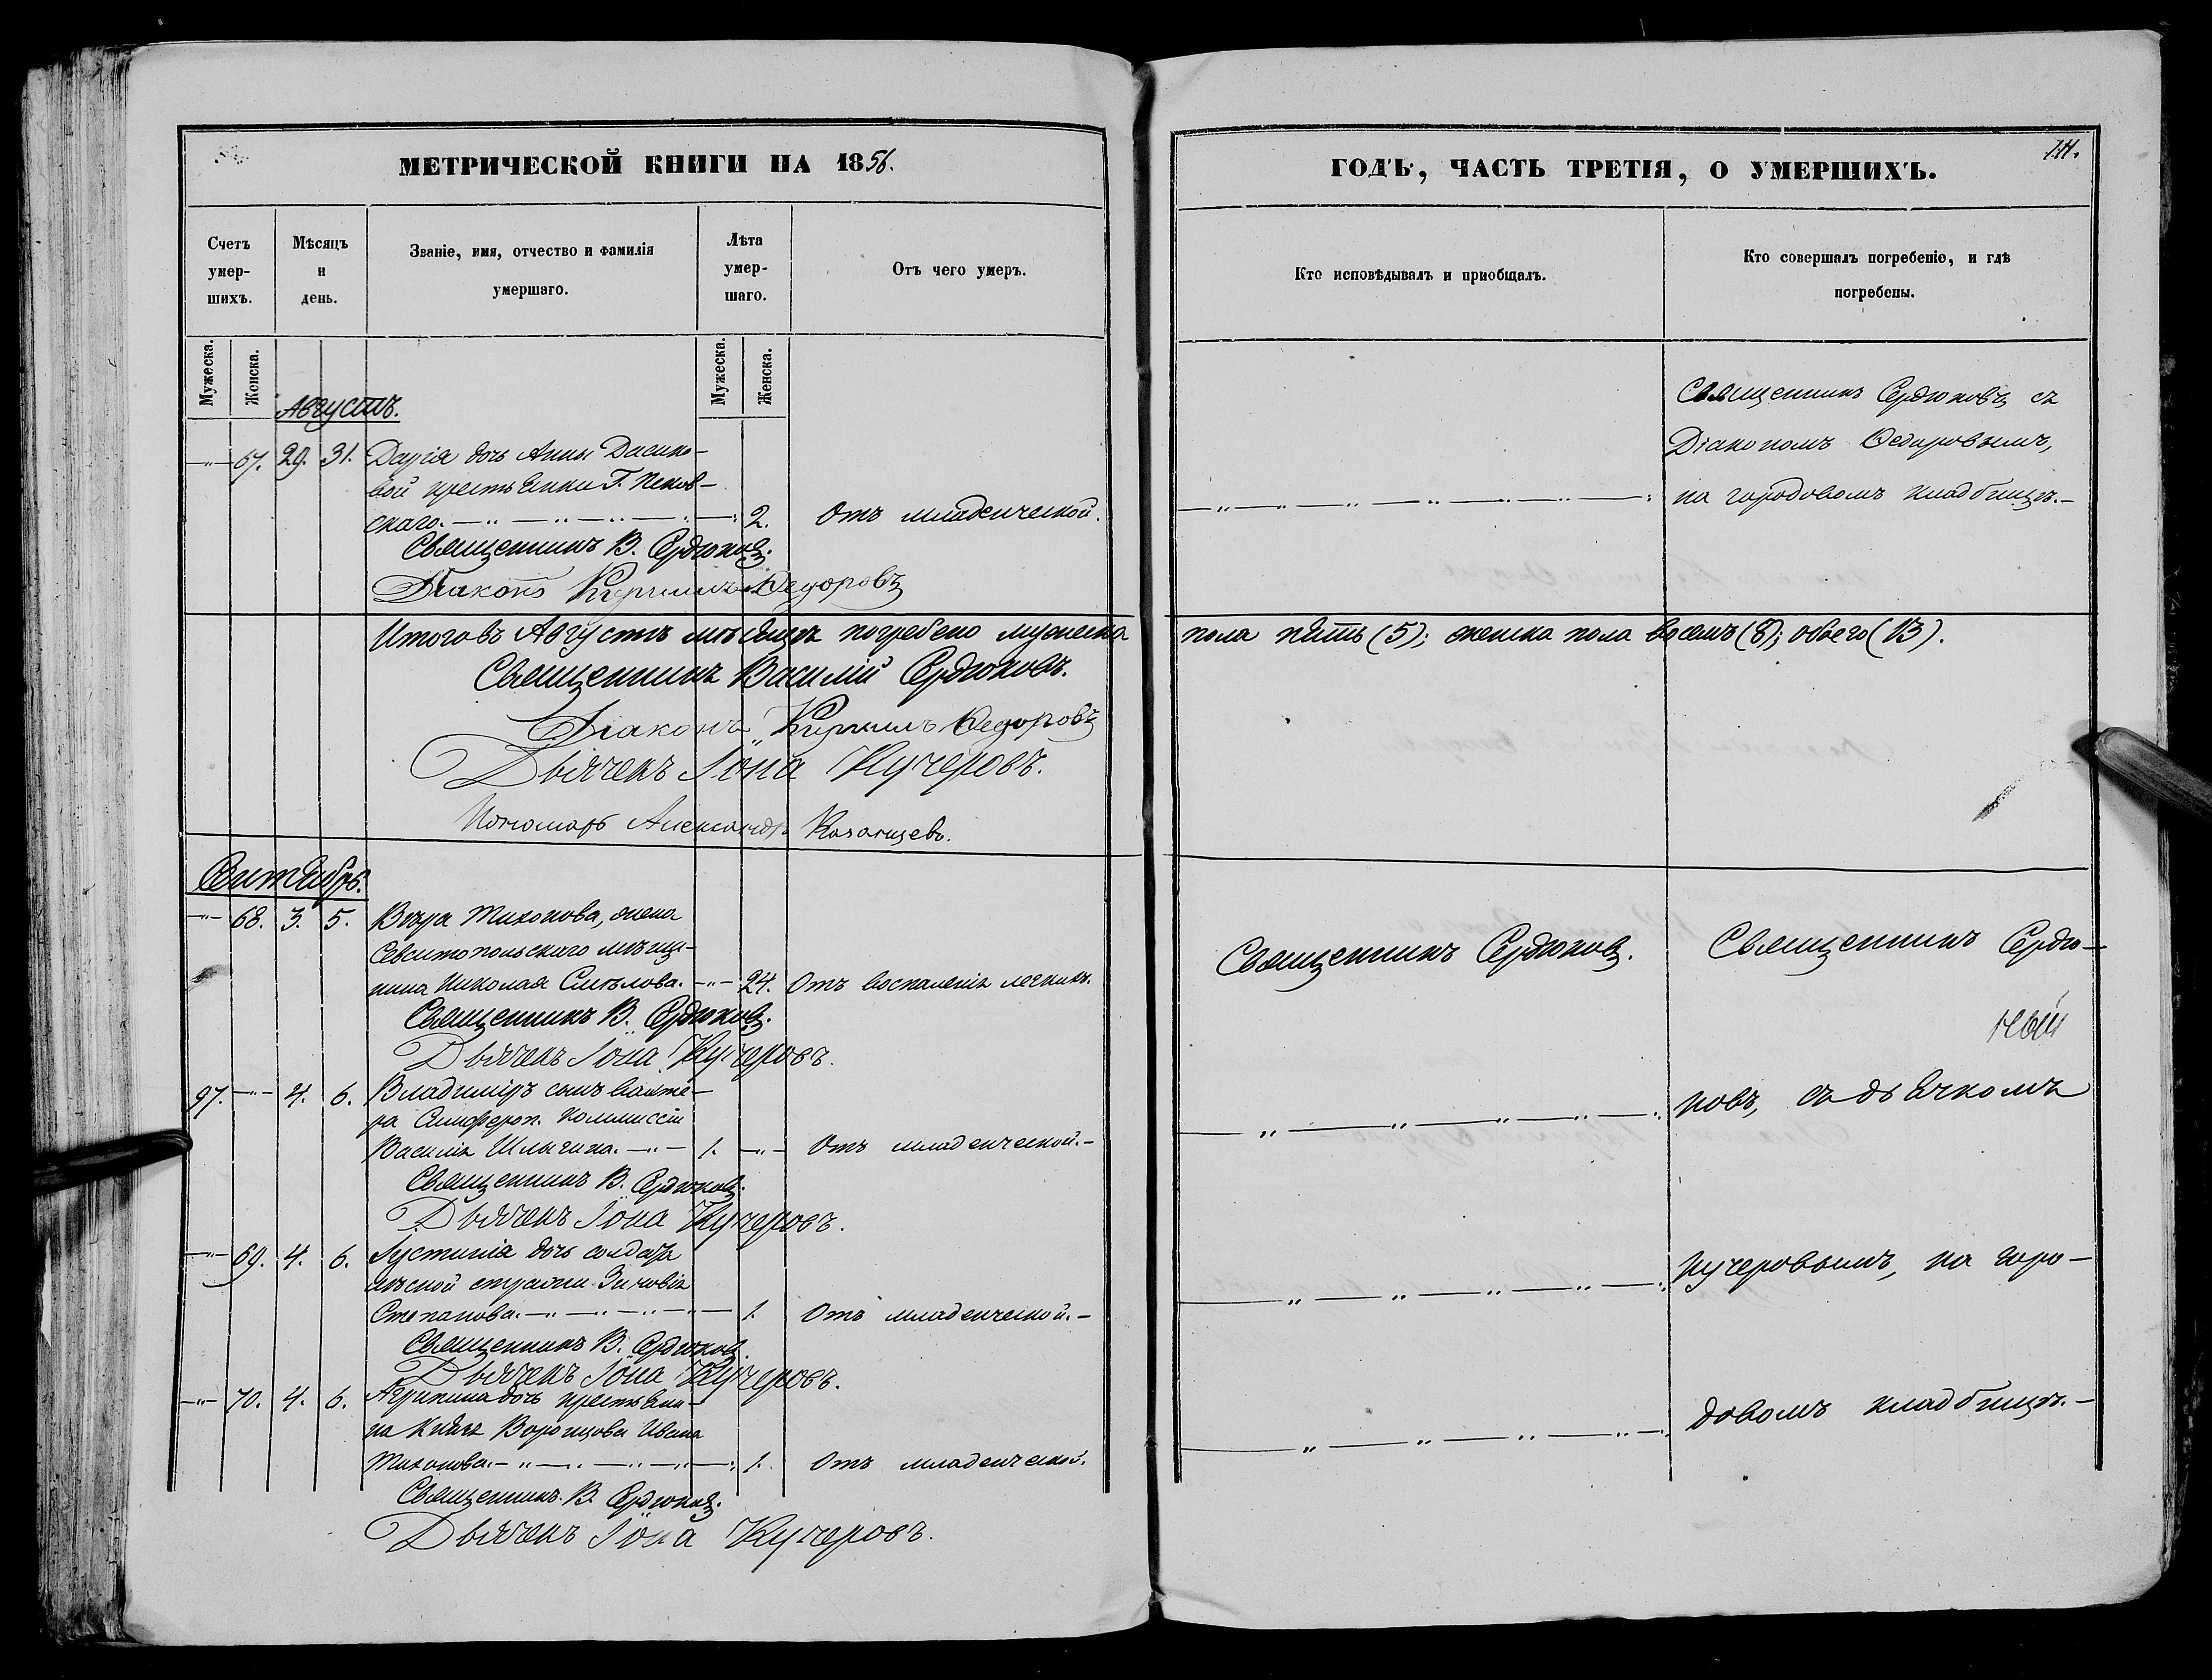 МЕТРИЧЕСКОЙ КНИГИ НА 1856.
Счетъ умер-шихъ.
Мѣсяцъ и день.
Званіе, имя, отчество и фамилія умершаго.
Лѣта умер-шаго.
Отъ чего умеръ.
Мужеска. Женска. Мужеска. Женска.
Августъ.
—"— 67. 29. 31. Дарія дочь Анны Дасико-
вой крестьянки Г.
скаго. —"—"—"— 2. Отъ младенческой.
Священникъ В. Сердюковъ.
Діаконъ Кириллъ Ѳедоровъ
Итого въ Августѣ мѣсяцѣ погребено мужеска
Священникъ Василій Сердюковъ.
Діаконъ Кириллъ Ѳедоровъ
Дьячекъ Іона Кучеровъ.
Пономарь Александръ Казанцевъ.
Сентябрь.
—"— 68. 3. 5. Вѣра Тихонова, жена
Севастопольскаго мѣща-
нина Николая Смѣлова. —"— 24. Отъ воспаленія легкихъ.
Священникъ В. Сердюковъ.
Дьячекъ Іона Кучеровъ.
97. —"— 4. 6. Владиміръ сынъ вахте-
ра Симфероп. Коммиссіи
Василія Шлыгина. —"— 1. —"— Отъ младенческой.—
Священникъ В. Сердюковъ.
Дьячекъ Іона Кучеровъ.
—"— 69. 4. 6. Іустинія дочь солдата
лѣсной стражи Зиновія
Степанова. —"—"—"— 1. Отъ младенческой.—
Священникъ В. Сердюковъ.
Дьячекъ Іона Кучеровъ.
—"— 70. 4. 6. Агрипина дочь крестьяни-
на Князя Воронцова Ивана
Тихонова. —"—"—"— 1. Отъ младенческой.
Священникъ В. Сердюковъ.
Дьячекъ Іона Кучеровъ.
ГОДЪ, ЧАСТЬ ТРЕТІЯ, О УМЕРШИХЪ.
Кто исповѣдывалъ и пріобщалъ.
Кто совершалъ погребеніе, и гдѣ погребены.
Священникъ Сердюковъ съ
Діакономъ Ѳедоровымъ,
на городовомъ кладбищѣ.—
пола пять (5); женска пола восемь (8); обоего (13).
Священникъ Сердюковъ. Священникъ Сердю-
ковъ, съ дьячкомъ
Кучеровымъ, на горо-
довомъ кладбищѣ.—